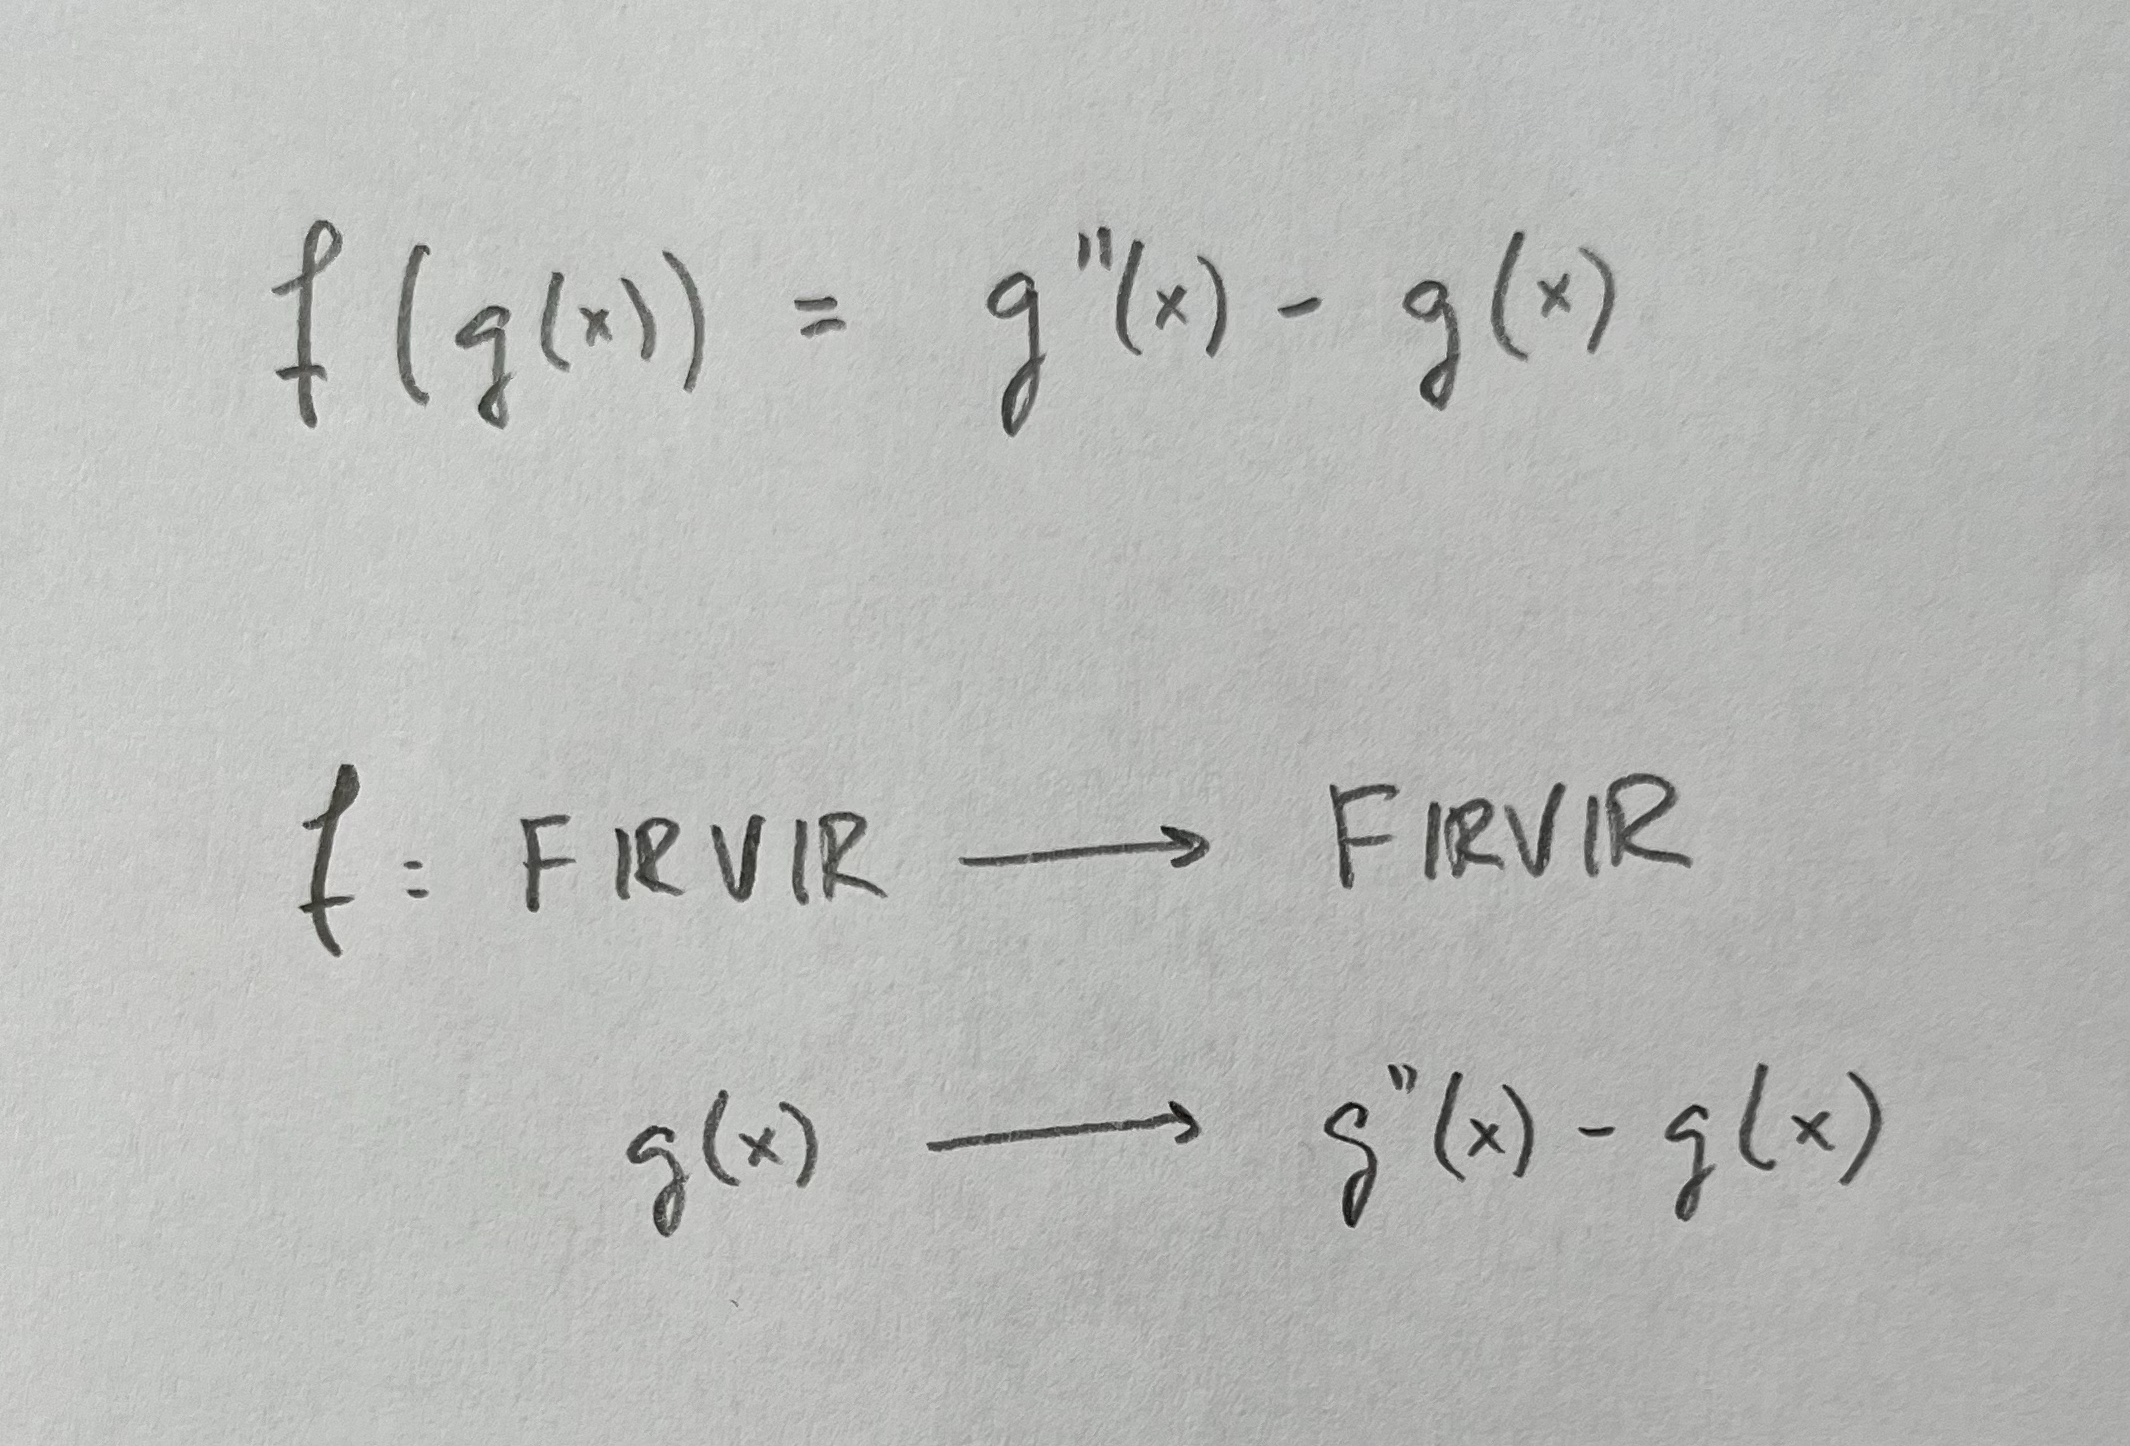 f(g(x)) = g"(x) - g(x)
f: FIRVIR ⟶ FIRVIR
g(x) ⟶ g"(x) - g(x)